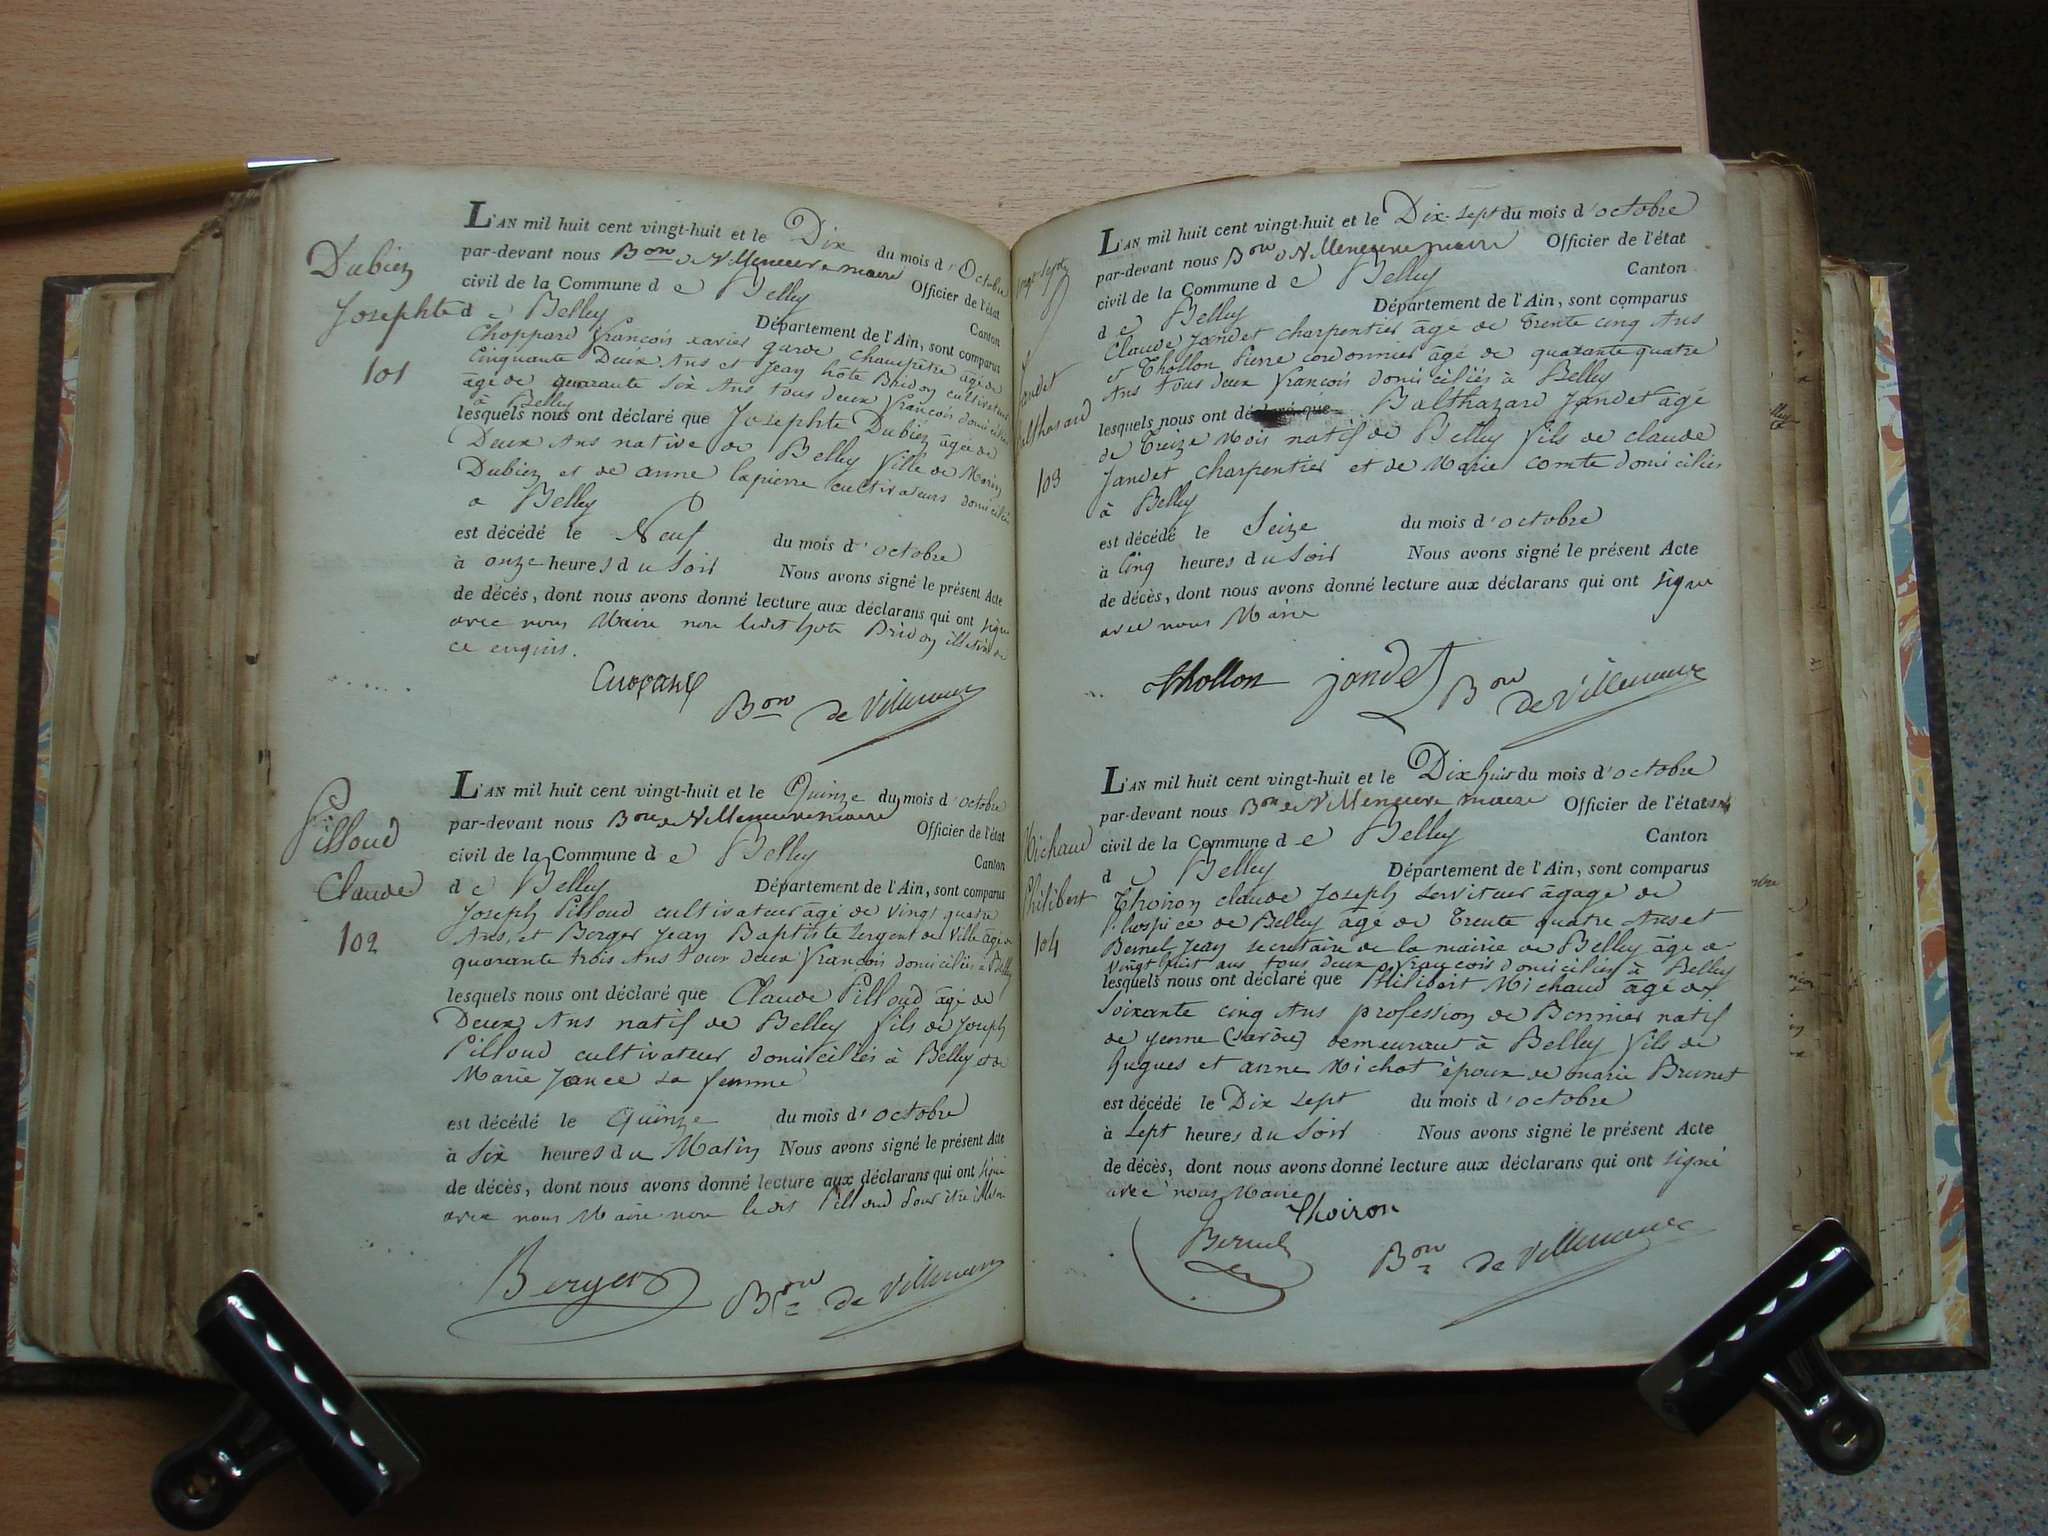 Dubiez
Josephte
101
L'AN mil huit cent vingt-huit et le Dix du mois d'Octobre
par-devant nous Bon de Villeneuve maire Officier de l'état
civil de la Commune de Belley Canton
de Belley Département de l'Ain, sont comparus
Choppard françois xavier garde champêtre âgé de
Cinquante Deux Ans et Jean hôte Bridon cultivateur
âgé de quarante Six Ans tous deux françois domiciliés
à Belley
lesquels nous ont déclaré que Josephte Dubiez âgée de
Deux Ans native de Belley fille de
Dubiez et de anne lapierre cultivateurs domiciliés
a Belley
est décédé le Neuf du mois d'octobre
à onze heures du Soir Nous avons signé le présent Acte
de décès, dont nous avons donné lecture aux déclarans qui ont signé
avec nous Maire non ledit hote Bridon illétéré de
ce enquis.
Bon de Villeneuve
Pilloud
Claude
102
L'AN mil huit cent vingt-huit et le Quinze du mois d'octobre
par-devant nous Bon de Villeneuve maire Officier de l'état
civil de la Commune de Belley Canton
de Belley Département de l'Ain, sont comparus
Joseph Pilloud cultivateur âgé de vingt quatre
Ans, et Berger Jean Baptiste Sergent de Ville âgé de
quarante trois Ans tous deux françois domiciliés a Belley
lesquels nous ont déclaré que Claude Pilloud âgé de
Deux Ans natif de Belley fils de Joseph
Pilloud cultivateur domiciliés à Belley et de
Marie Jance sa femme
est décédé le Quinze du mois d'octobre
à Six heures du Matin Nous avons signé le présent Acte
de décès, dont nous avons donné lecture aux déclarans qui ont signé
avec nous Maire non ledit Pilloud pour être
Berger Bon de Villeneuve
Jandet
Balthasard
103
L'AN mil huit cent vingt-huit et le Dix-sept du mois d'octobre
par-devant nous Bon de Villeneuve maire Officier de l'état
civil de la Commune de Belley Canton
de Belley Département de l'Ain, sont comparus
Claude Jandet charpentier âgé de trente cinq Ans
et Thollon Pierre cordonnier âgé de quarante quatre
Ans tous deux françois domiciliés à Belley
lesquels nous ont déclaré que Balthazard Jandet âgé
de Treize Mois natif de Belley fils de claude
Jandet charpentier et de Marie comte domiciliés
à Belley
est décédé le Seize du mois d'octobre
à Cinq heures du Soir Nous avons signé le présent Acte
de décès, dont nous avons donné lecture aux déclarans qui ont signé
avec nous Maire
thollon jandet Bon de Villeneuve
Michaud
Philibert
104
L'AN mil huit cent vingt-huit et le Dix huit du mois d'octobre
par-devant nous Bon de Villeneuve maire Officier de l'état
civil de la Commune de Belley Canton
de Belley Département de l'Ain, sont comparus
Thoiron claude Joseph serviteur àgagé de
l'hospice de Belley âgé de trente quatre Ans et
Bernel Jean secretaire de la mairie de Belley âgé de
vingt huit ans tous deux françois domiciliés à Belley
lesquels nous ont déclaré que Philibert Michaud âgé de
Soixante cinq Ans profession de Bennier natif
de yenne (Savoie) demeurant à Belley fils de
hugues et anne Michot époux de marie Brunet
est décédé le Dix sept du mois d'octobre
à sept heures du Soir Nous avons signé le présent Acte
de décès, dont nous avons donné lecture aux déclarans qui ont signé
avec nous Maire
Thoiron
Bernel Bon de Villeneuve